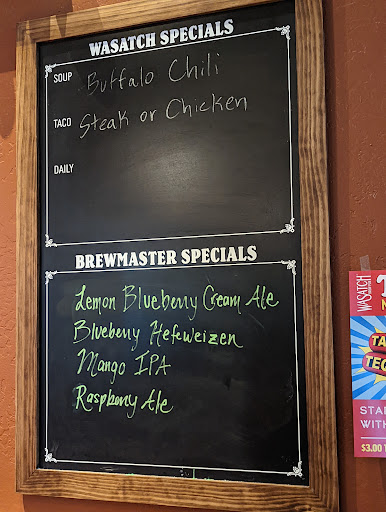 WASATCH SPECIALS
SOUP Buffalo Chili
TACO Steak or Chicken
DAILY
BREWMASTER SPECIALS
Lemon Blueberry Cream Ale
Blueberry Hefeweizen
Mango IPA
Raspberry Ale
WASATCH
TA
TEQ
STAR
WITH
$3.00